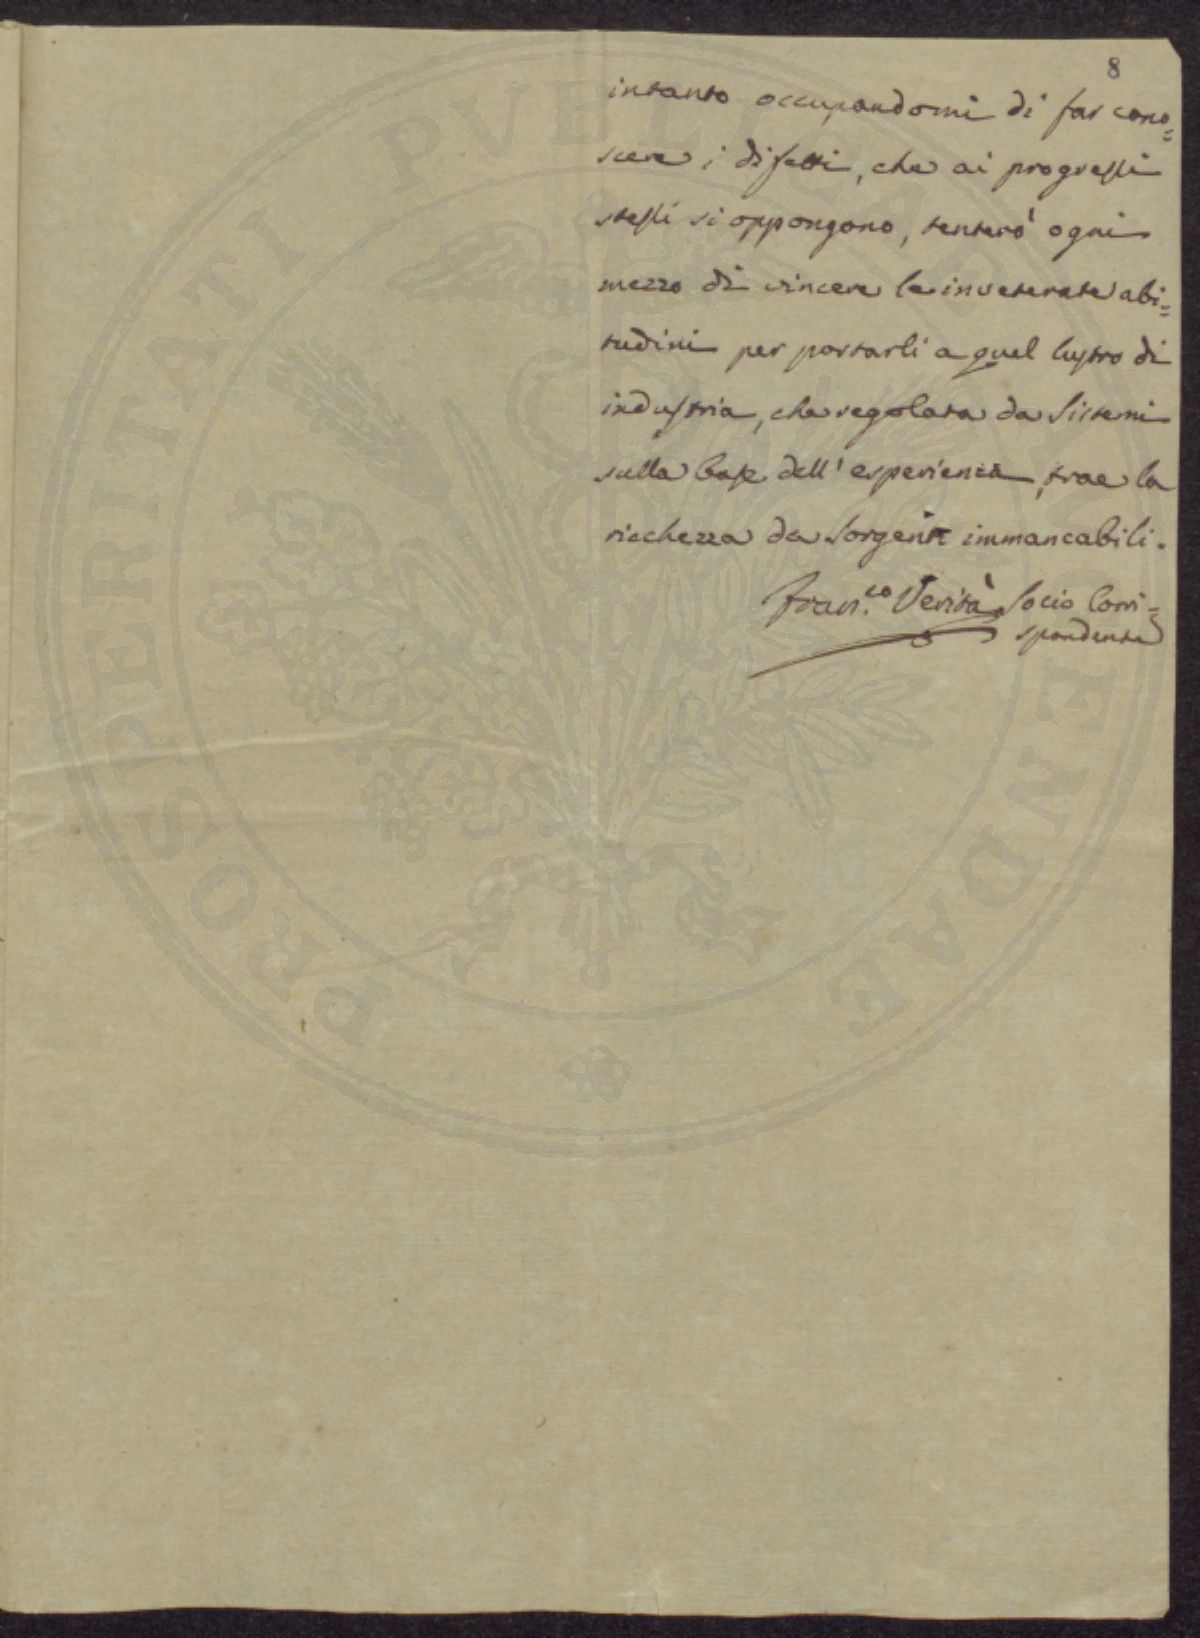 8
intanto occupandomi di far cono=
scere i difetti, che ai progressi
stessi si oppongono, tenterò ogni
mezzo di vincere le inveterate abi=
tudini per portarli a quel lustro di
industria, che regolata da Sistemi
sulla base dell'esperienza, trae la
ricchezza da Sorgenti immancabili.
Fran.co Verità Socio Corri=
spondente
PROSPERITATI PVBLICAE AVGENDAE